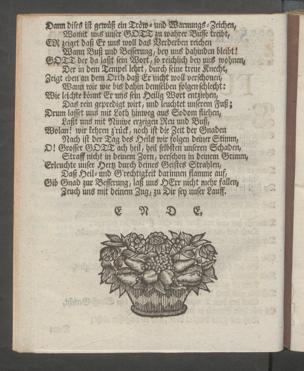 Dann dises ist gewüß ein Tröw- und Warnungs-Zeichen,
Womit uns unser GOTT zu wahrer Busse treibt,
ER zeiget daß Er uns woll das Verderben reichen
Wann Buß und Besserung, bey uns dahinden bleibt!
GOTT der da laßt sein Wort, so reichlich bey uns wohnen,
Der in dem Tempel lehrt, durch seine treue Knecht,
Zeigt eben an dem Orth daß Er nicht woll verschonen,
Wann wir wie bis dahin demselben folgen schlecht:
Wie leichte könnt Er uns sein Heilig Wort entziehen,
Das rein geprediget wirt, und leuchtet unserem Fuß;
Drum lasset uns mit Loth hinweg aus Sodom fliehen,
Laßt uns mit Ninive erzeigen Reu und Buß,
Wolan! wir kehren z'rück, noch ist die Zeit der Gnaden
Noch ist der Tag des Heils wir folgen deiner Stimm,
O! Grosser GOTT ach heil, heil selbsten unseren Schaden,
Straff nicht in deinem Zorn, verschon in deinem Grimm,
Erleuchte unser Hertz durch deines Geistes Strahlen,
Daß Heil- und G'rechtigkeit darinnen flamme auf,
Gib Gnad zur Besserung, laß uns HErr nicht mehr fallen,
Zeuch uns mit deinem Zug, zu Dir sey unser Lauff.
E N D E.